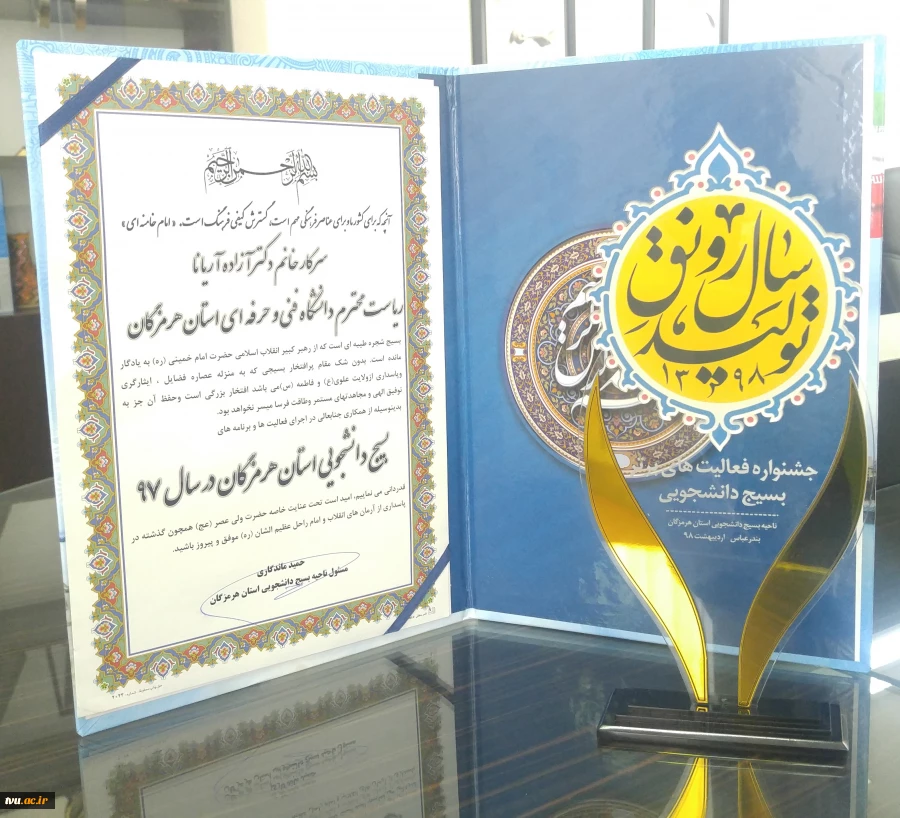 بسم الله الرحمن الرحیم
آنچه که برای کشور ما و برای عناصر فرهنگی مهم است، گسترش کیفی فرهنگ است. «امام خامنه ای»
سرکار خانم دکتر آزاده آریانا
ریاست محترم دانشگاه فنی و حرفه ای استان هرمزگان
بسیج شجره طیبه ای است که از رهبر کبیر انقلاب اسلامی حضرت امام خمینی (ره) به یادگار
مانده است. بدون شک مقام پرافتخار بسیجی که به منزله عصاره فضایل ، ایثارگری
وپاسداری ازولایت علوی(ع) و فاطمه (س)می باشد افتخار بزرگی است وحفظ آن جز به
توفیق الهی و مجاهدتهای مستمر وطاقت فرسا میسر نخواهد بود.
بدینوسیله از همکاری جنابعالی در اجرای فعالیت ها و برنامه های
بسیج دانشجویی استان هرمزگان در سال ۹۷
قدردانی می نماییم. امید است تحت عنایت خاصه حضرت ولی عصر (عج) همچون گذشته در
پاسداری از آرمان های انقلاب و امام راحل عظیم الشان (ره) موفق و پیروز باشید.
حمید ماندگاری
مسئول ناحیه بسیج دانشجویی استان هرمزگان
سال رونق
تولید
۱۳۹۸
جشنواره فعالیت های
بسیج دانشجویی
ناحیه بسیج دانشجویی استان هرمزگان
بندرعباس اردیبهشت ۹۸
tvu.ac.ir